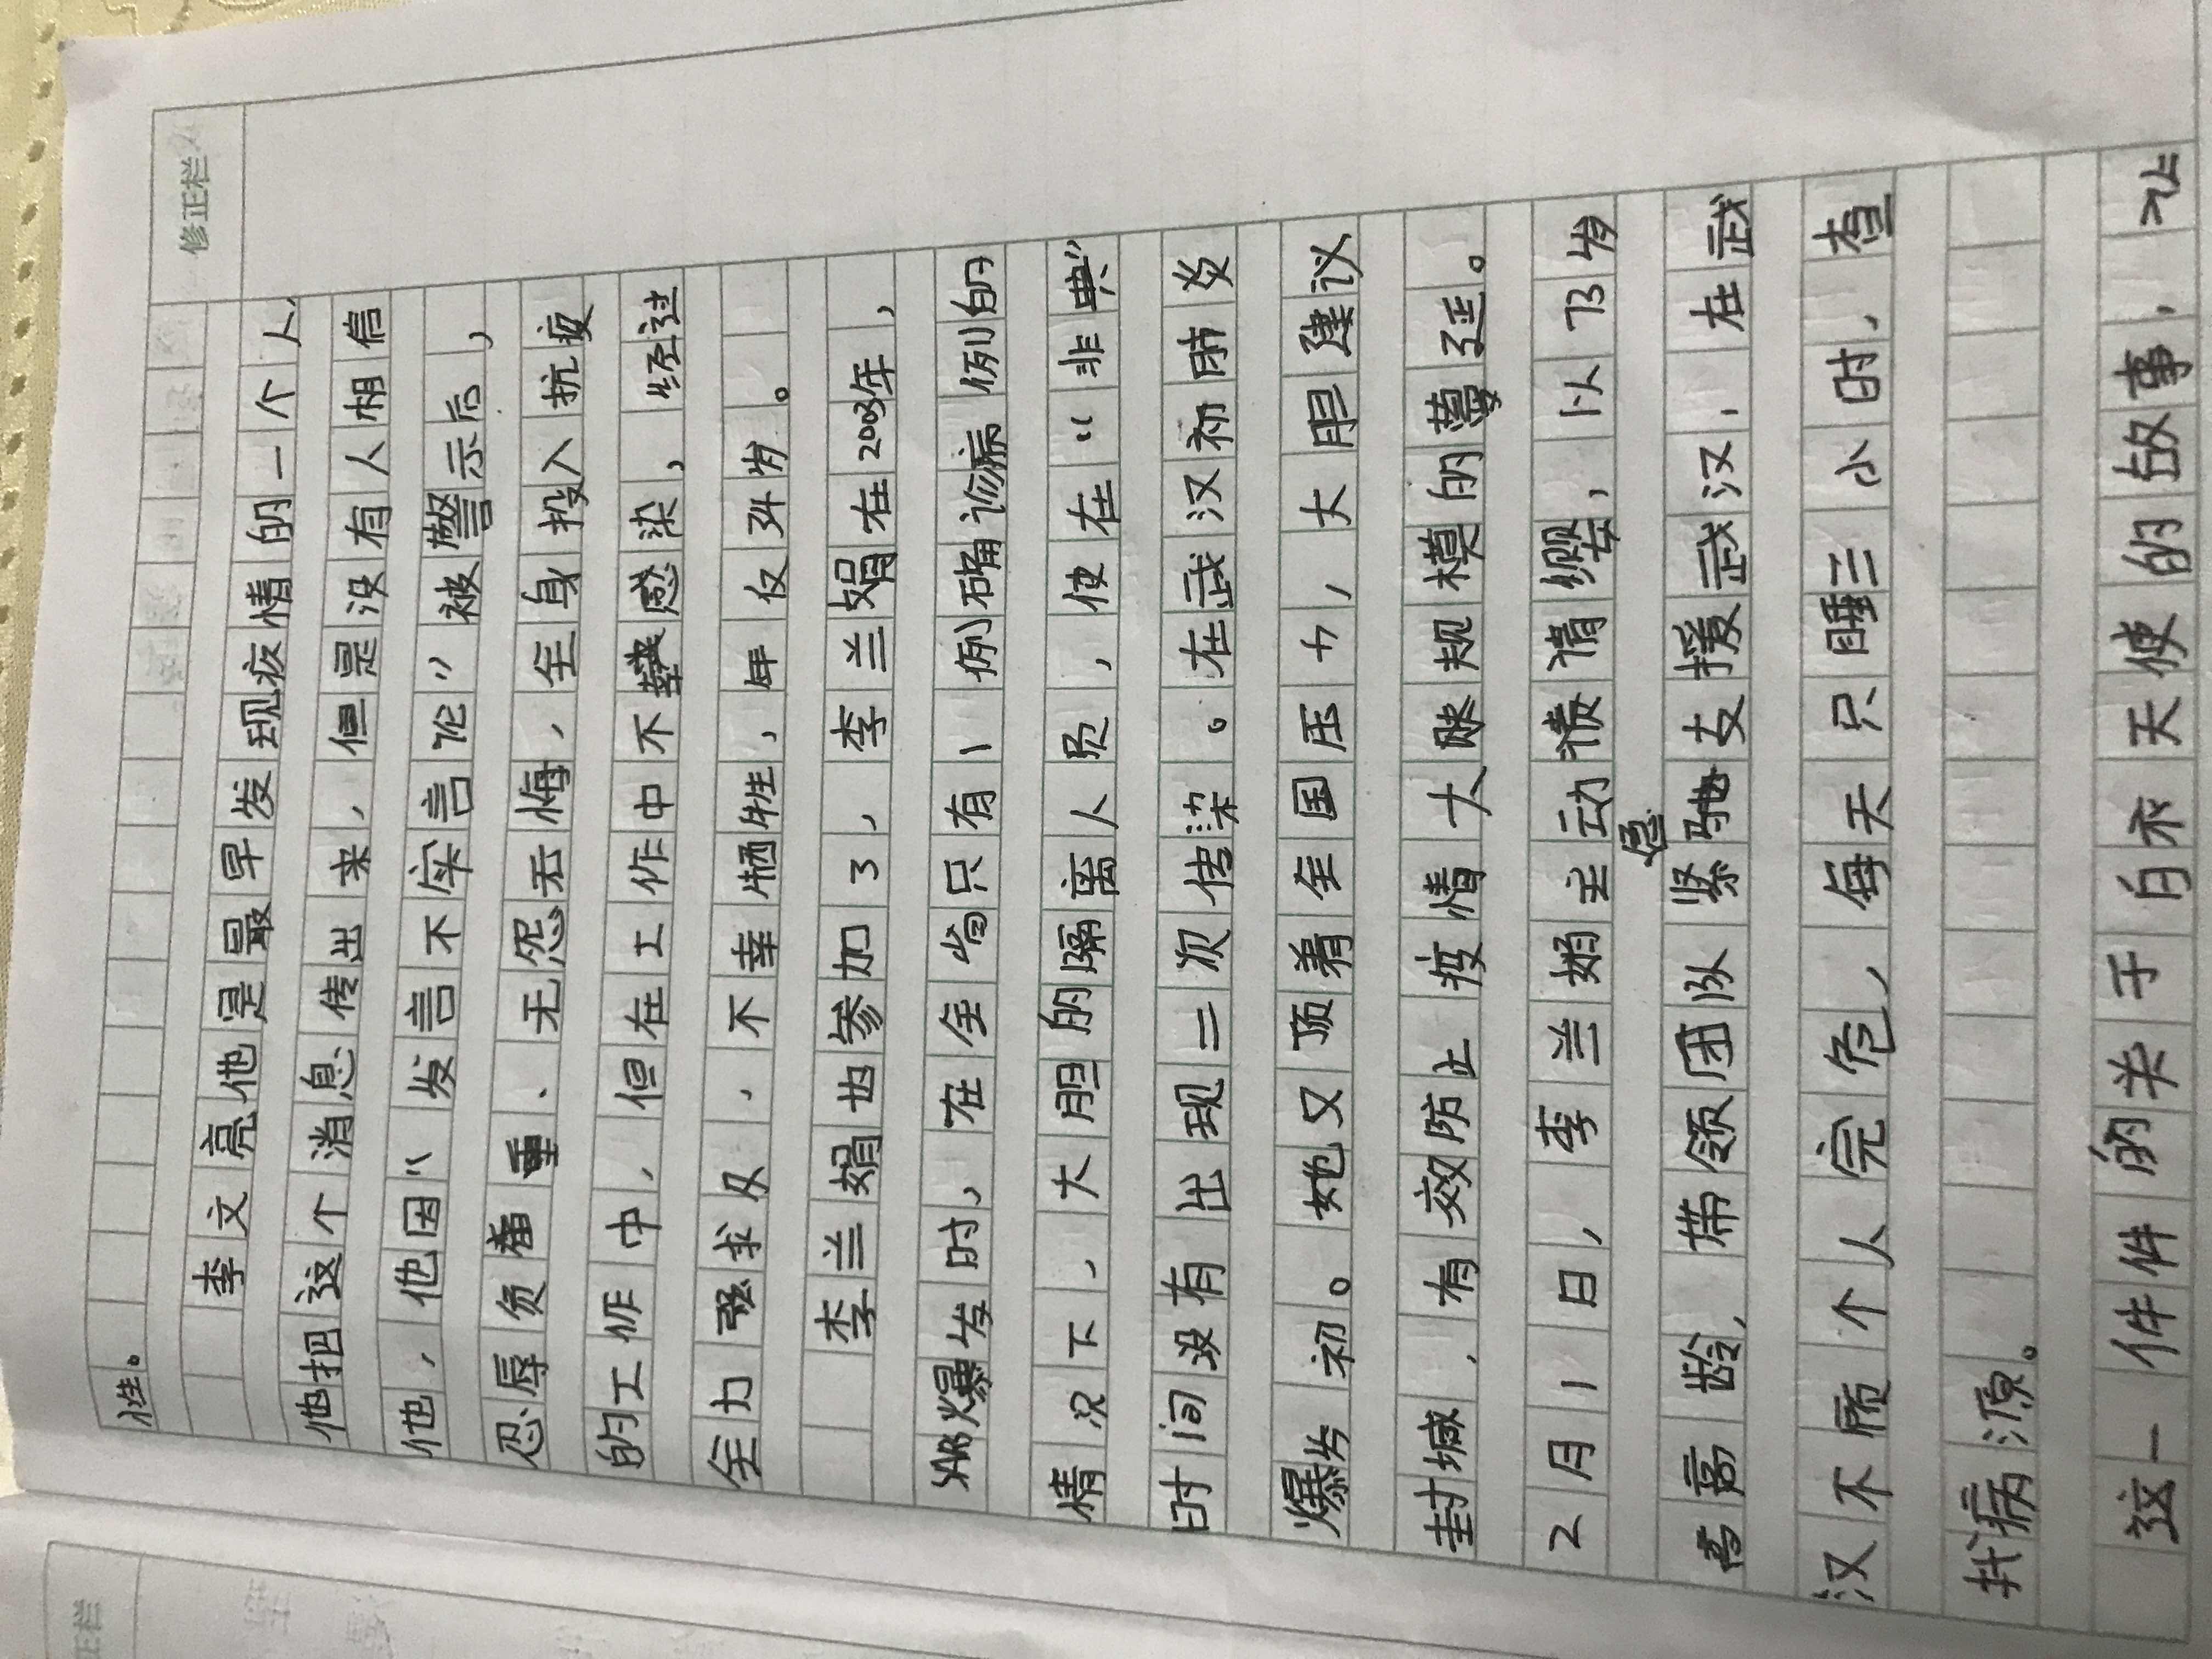 修正栏
性。
李文亮他是最早发现疫情的一个人,
他把这个消息传出来，但是没有人相信
他，他因“发言不实言论”被警示后，
忍辱负重、无怨无悔，全身投入抗疫
的工作中，但在工作中不幸感染，经过
全力强求及，不幸牺牲，年仅34岁。
李兰娟也参加了，李兰娟在2003年，
爆发时，在全省只有1例确诊病例的
情况下，大胆的隔离人员，使在“非典”
时间没有出现二次传染。在武汉初肺炎
爆发初。她又顶着全国压力，大胆建议
封城，有效防止疫情大规模的蔓延。
2月1日，李兰娟主动请缨，以73岁
高龄，带领团队紧急支援武汉，在武
汉不顾个人完危，每天只睡三小时，查
找病源。
这一件件的关于白衣天使的故事，让
正栏